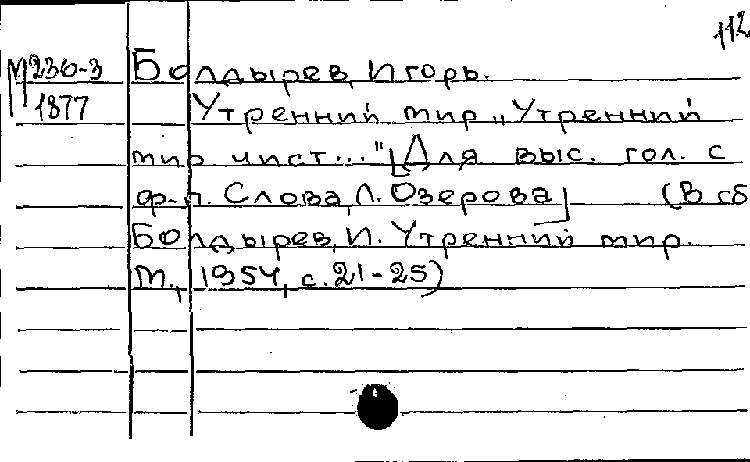 112
М 236-3 Болдырев, Игорь.
1877 Утренний мир „Утренний
мир чист..." [Для выс. гол. с
ф-п. Слова Л. Озерова] (В сб
Болдырев, И. Утренний мир.
М., 1954, с. 21-25)